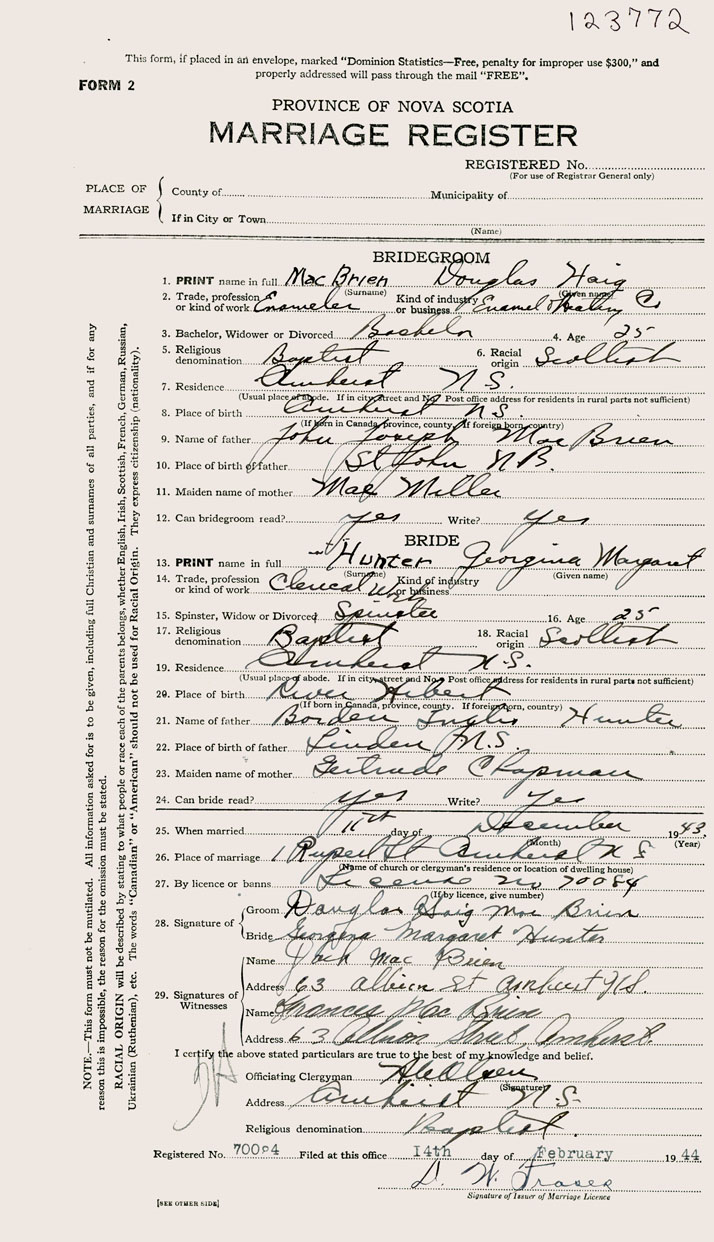 123772
This form, if placed in an envelope, marked "Dominion Statistics—Free, penalty for improper use $300," and
properly addressed will pass through the mail "FREE".
FORM 2
PROVINCE OF NOVA SCOTIA
MARRIAGE REGISTER
REGISTERED No.
(For use of Registrar General only)
PLACE OF MARRIAGE
County of
Municipality of
If in City or Town
(Name)
BRIDEGROOM
1. PRINT name in full Mac Brien Douglas Haig
(Surname) (Given name)
2. Trade, profession or kind of work Enameler Kind of industry or business Enamel & Heating Co
3. Bachelor, Widower or Divorced Bachelor 4. Age 25
5. Religious denomination Baptist 6. Racial origin Scottish
7. Residence Amherst N S.
(Usual place of abode. If in city, street and No. Post office address for residents in rural parts not sufficient)
8. Place of birth Amherst N S.
(If born in Canada, province, county. If foreign born, country)
9. Name of father John Joseph Mac Brien
10. Place of birth of father St John N B.
11. Maiden name of mother Mae Miller
12. Can bridegroom read? yes Write? yes
BRIDE
13. PRINT name in full Hunter Georgina Margaret
(Surname) (Given name)
14. Trade, profession or kind of work Clerical Kind of industry or business
15. Spinster, Widow or Divorced Spinster 16. Age 25
17. Religious denomination Baptist 18. Racial origin Scottish
19. Residence Amherst N.S.
(Usual place of abode. If in city, street and No. Post office address for residents in rural parts not sufficient)
20. Place of birth River Hebert
(If born in Canada, province, county. If foreign born, country)
21. Name of father Borden Inglis Hunter
22. Place of birth of father Linden N.S.
23. Maiden name of mother Gertrude Chapman
24. Can bride read? yes Write? yes
25. When married 11th day of December 1943.
(Month) (Year)
26. Place of marriage 1 Rupert St Amherst N S
(Name of church or clergyman's residence or location of dwelling house)
27. By licence or banns License no 70084
(If by licence, give number)
28. Signature of
Groom Douglas Haig Mac Brien
Bride Georgina Margaret Hunter
29. Signatures of Witnesses
Name Jack Mac Brien
Address 63 Albion St Amherst N.S.
Name Frances Mac Brien
Address 63 Albion Street, Amherst.
I certify the above stated particulars are true to the best of my knowledge and belief.
Officiating Clergyman
(Signature)
Address Amherst N.S.
Religious denomination Baptist.
Registered No. 70084 Filed at this office 14th day of February 1944
D. W. Fraser
Signature of Issuer of Marriage Licence
[SEE OTHER SIDE]
NOTE.—This form must not be mutilated. All information asked for is to be given, including full Christian and surnames of all parties, and if for any
reason this is impossible, the reason for the omission must be stated.
RACIAL ORIGIN will be described by stating to what people or race each of the parents belongs, whether English, Irish, Scottish, French, German, Russian,
Ukrainian (Ruthenian), etc. The words "Canadian" or "American" should not be used for Racial Origin. They express citizenship (nationality).